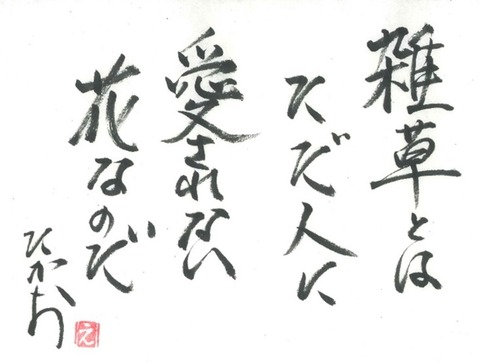 雑草とは
ただ人に
愛されない
花なのだ
たかお
え